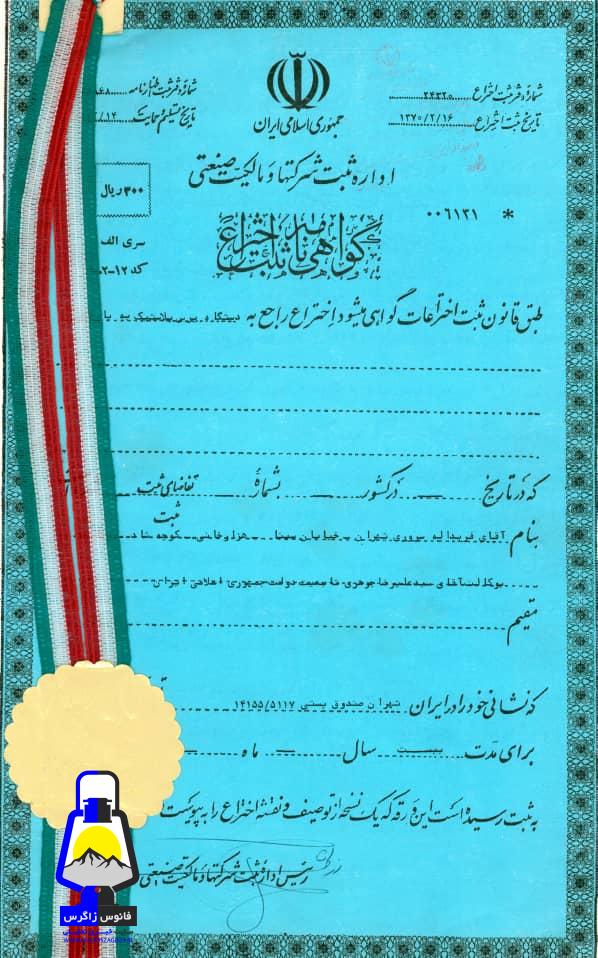 شماره دفتر ثبت اختراع ۲۴۳۲۰
تاریخ ثبت اختراع ۱۳۷۰/۲/۱۶
جمهوری اسلامی ایران
شماره دفتر ثبت اظهارنامه ۸۶۸
تاریخ تسلیم و حمایت ۲/۱۴
اداره ثبت شرکتها و مالکیت صنعتی
۳۰۰ ریال
* ۰۰۶۱۳۱
گواهی نامه ثبت اختراع
سری الف
کد ۱۲-۲۰
طبق قانون ثبت اختراعات گواهی میشود اختراع راجع به دستگاه پرس پلاستیک
که در تاریخ — در کشور — بشماره تقاضای ثبت
ثبت
بنام آقای فریدا سروری تهران خیابان سینا هزاوخانی کوچه شاد
بوکالت آقای سید علیرضا جوهری تابعیت دولت جمهوری اسلامی ایران
مقیم
که نشانی خود را در ایران تهران صندوق پستی ۱۴۱۵۵/۵۱۱۷
برای مدت بیست سال — ماه —
به ثبت رسیده است این ورقه که یک نسخه از توصیف و نقشه اختراع را به پیوست
رئیس اداره ثبت شرکتها و مالکیت صنعتی
فانوس زاگرس